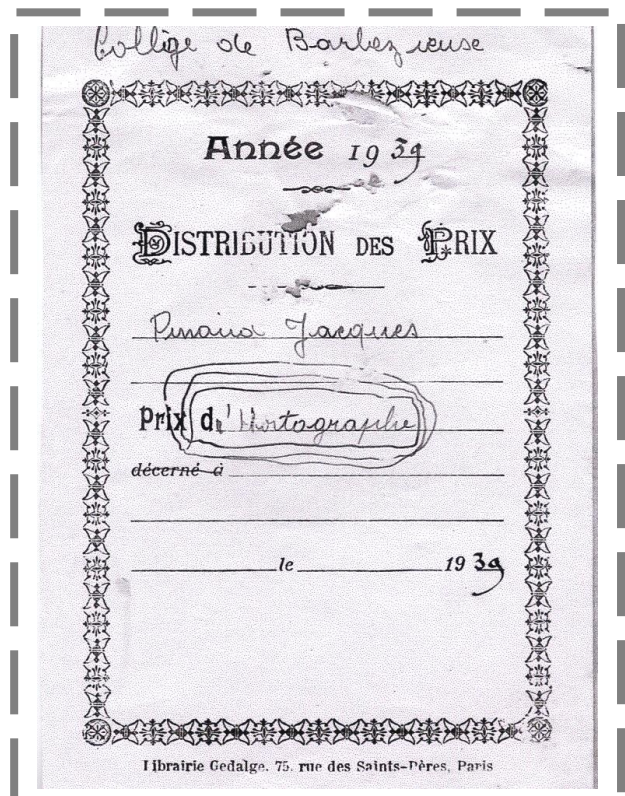 Collège de Barbezieuse
Année 1939
DISTRIBUTION DES PRIX
Jacques
Prix d'Hortographe
décerné à
le 1939
Librairie Gedalge. 75. rue des Saints-Pères, Paris